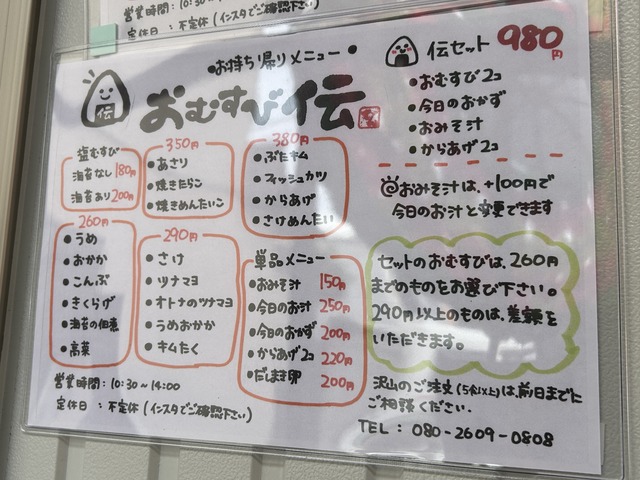 営業時間:10:30~
定休日 : 不定休(インスタでご確認下さい)
•お持ち帰りメニュー•
伝
おむすび伝
伝セット 980円
•おむすび2コ
•今日のおかず
•おみそ汁
•からあげ2コ
◎おみそ汁は、+100円で
今日のお汁と変更できます
塩むすび
海苔なし 180円
海苔あり 200円
350円
•あさり
•焼きたらこ
•焼きめんたいこ
380円
•ぶたキム
•フィッシュカツ
•からあげ
•さけめんたい
260円
•うめ
•おかか
•こんぶ
•きくらげ
•海苔の佃煮
•高菜
290円
•さけ
•ツナマヨ
•オトナのツナマヨ
•うめおかか
•キムたく
単品メニュー
•おみそ汁 150円
•今日のお汁 250円
•今日のおかず 200円
•からあげ2コ 220円
•だしまき卵 200円
セットのおむすびは、260円
までのものをお選び下さい。
290円以上のものは、差額を
いただきます。
営業時間:10:30~14:00
定休日 : 不定休(インスタでご確認下さい)
沢山のご注文(5食以上)は、前日までに
ご相談ください。
TEL : 080-2609-0808